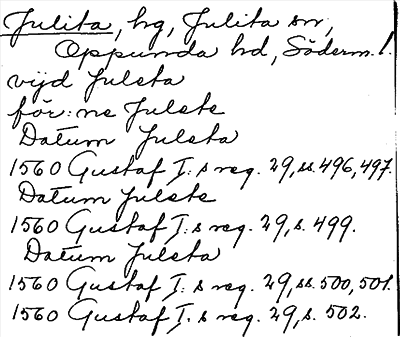 Julita, hg, Julita sn,
Oppunda hd, Söderm. l.
vijd Julsta
för: ne Julste
Datum Julsta
1560 Gustaf I: s reg. 29, ss. 496, 497.
Datum Julste
1560 Gustaf I: s reg. 29, s. 499.
Datum Julsta
1560 Gustaf I: s reg. 29, ss. 500, 501.
1560 Gustaf I. s reg. 29, s. 502.